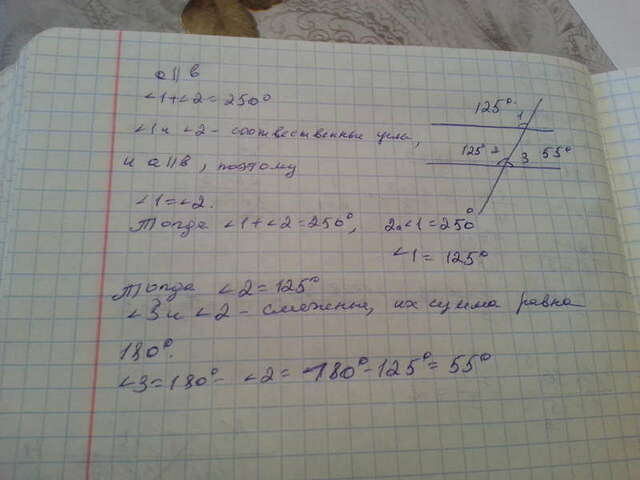 a || в
∠1+∠2=250°
∠1 и ∠2 - соответственные углы,
и a||в, поэтому
∠1=∠2.
Тогда ∠1+∠2=250°, 2∠1=250°
∠1 = 125°
Тогда ∠2=125°
∠3 и ∠2 - смежные, их сумма равна
180°.
∠3=180°- ∠2= 180°-125°= 55°
125° 1
125° 2 3 55°